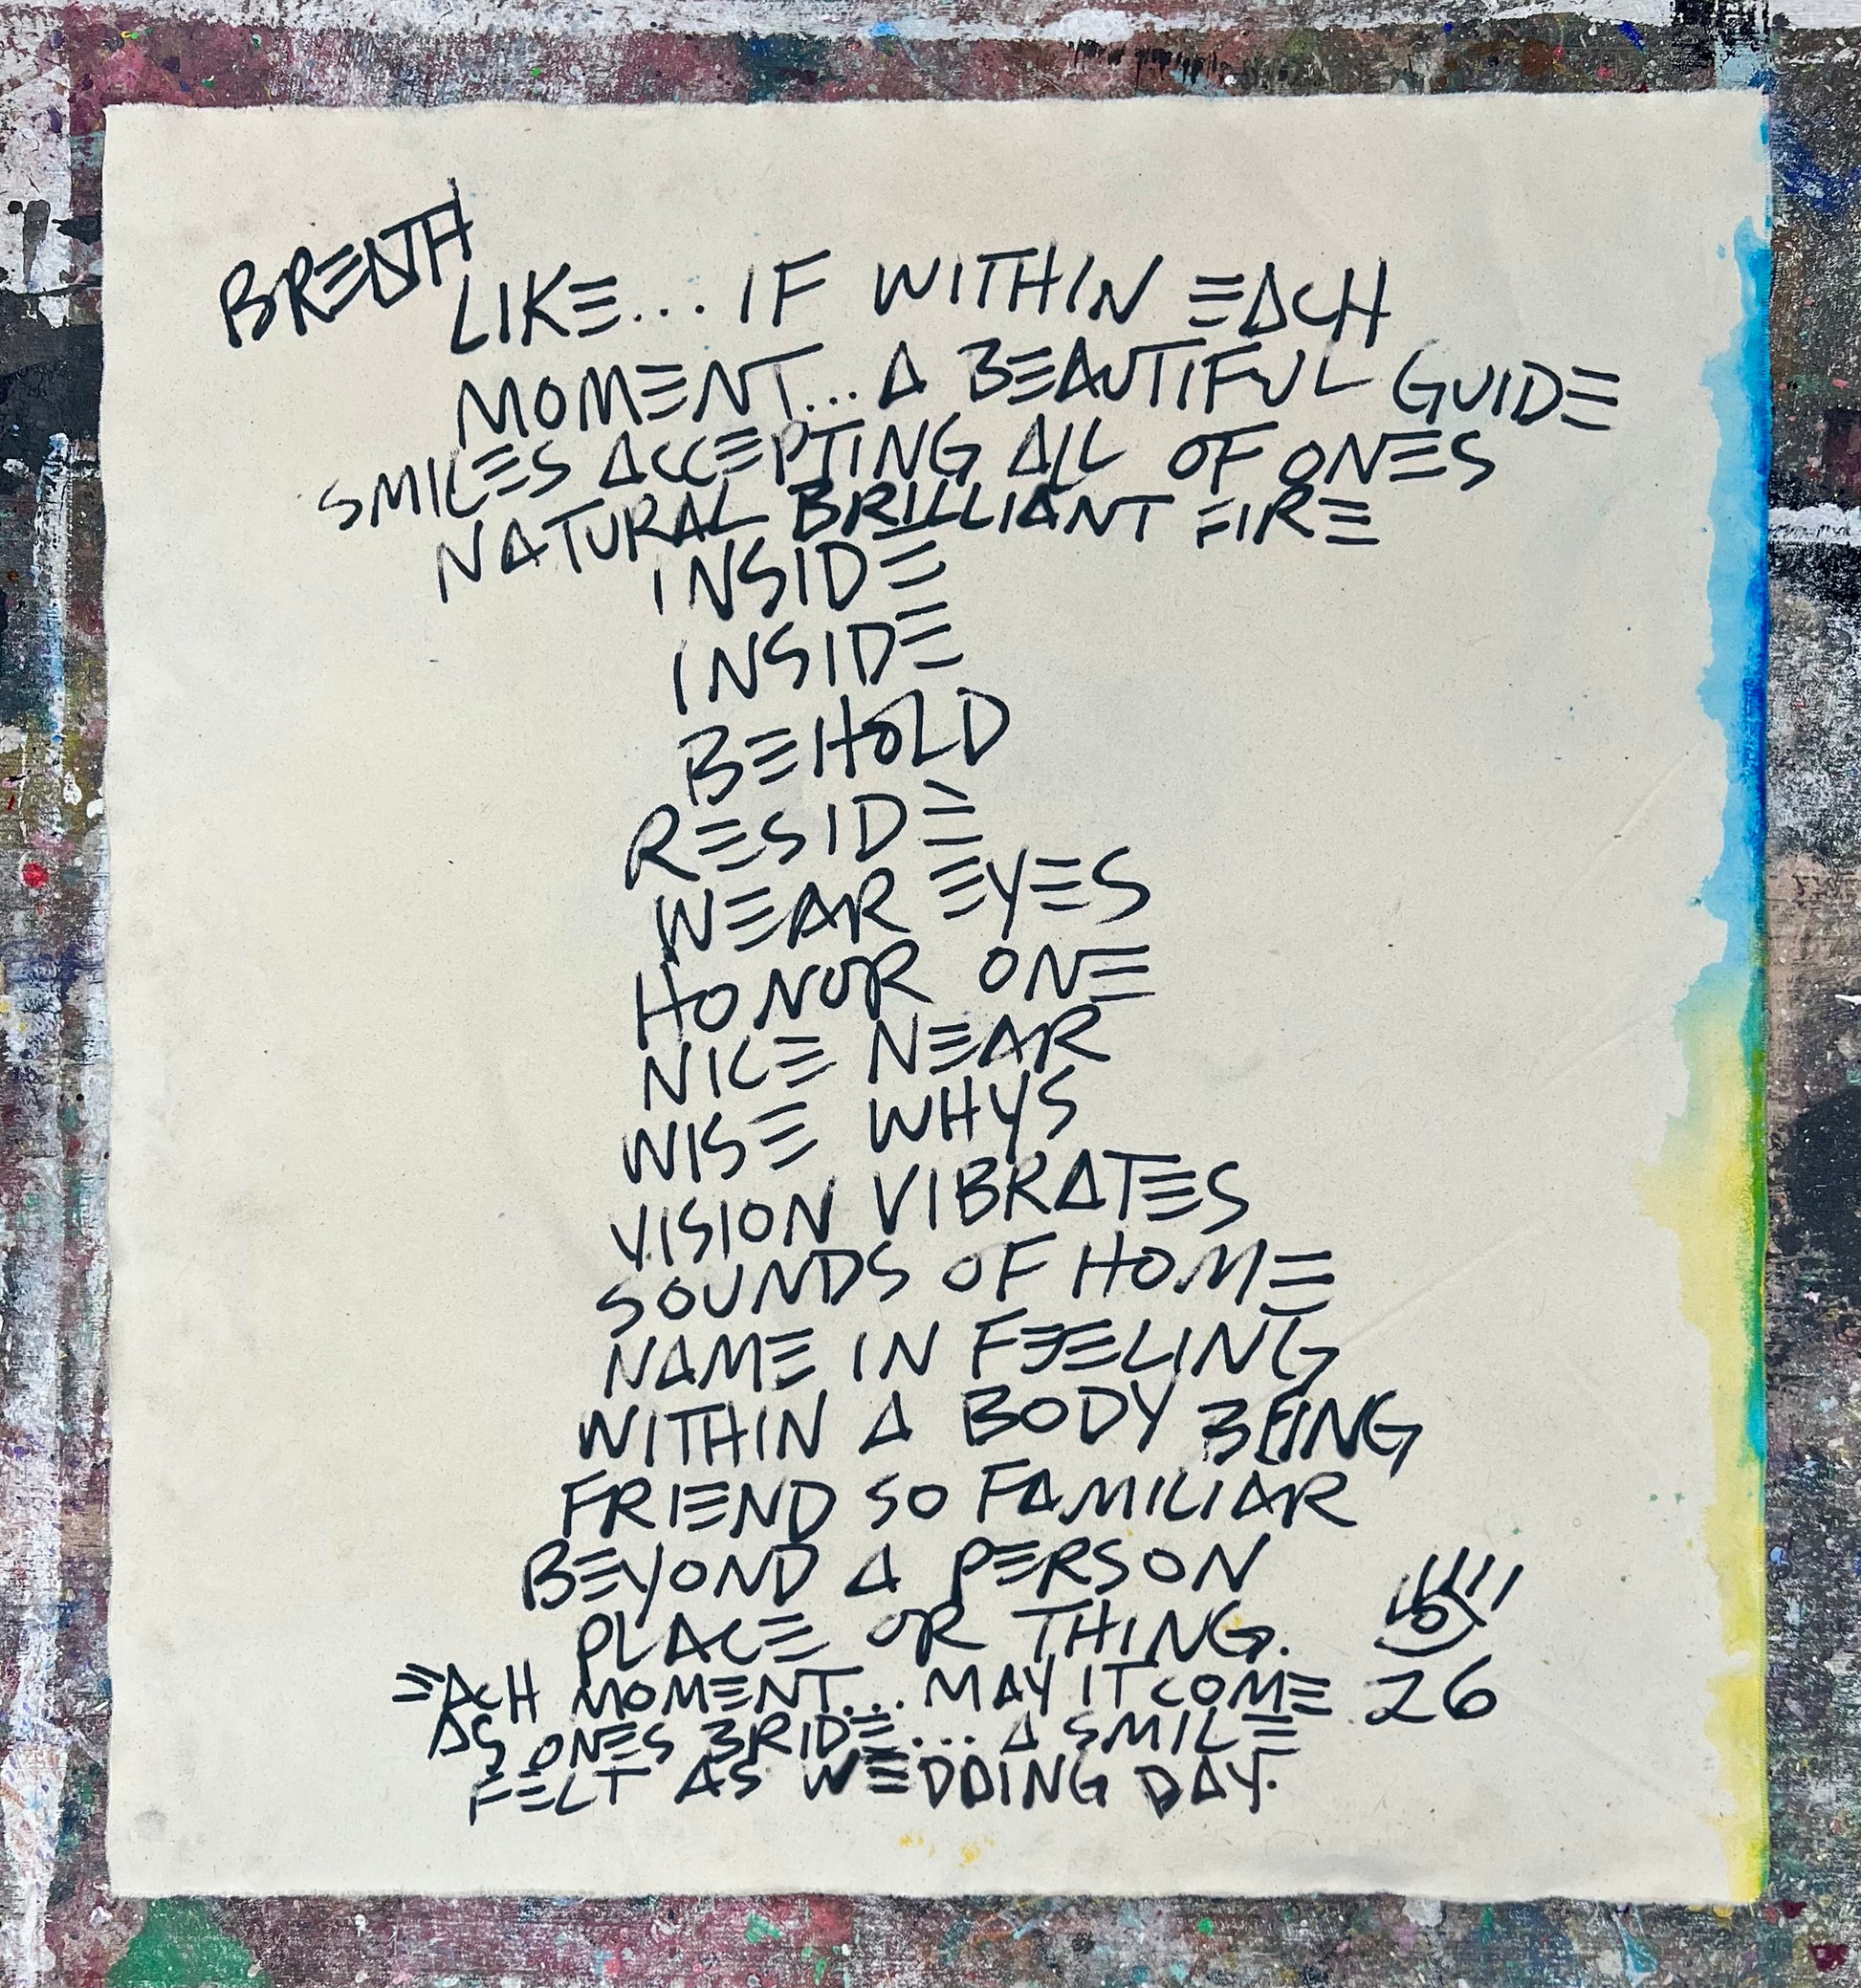 BREATH
LIKE... IF WITHIN EACH
MOMENT... A BEAUTIFUL GUIDE
SMILES ACCEPTING ALL OF ONES
NATURAL BRILLIANT FIRE
INSIDE
INSIDE
BEHOLD
RESIDE
WEAR EYES
HONOR ONE
NICE NEAR
WISE WHYS
VISION VIBRATES
SOUNDS OF HOME
NAME IN FEELING
WITHIN A BODY BEING
FRIEND SO FAMILIAR
BEYOND A PERSON
PLACE OR THING.
EACH MOMENT... MAY IT COME
AS ONES BRIDE... A SMILE
FELT AS WEDDING DAY.
26